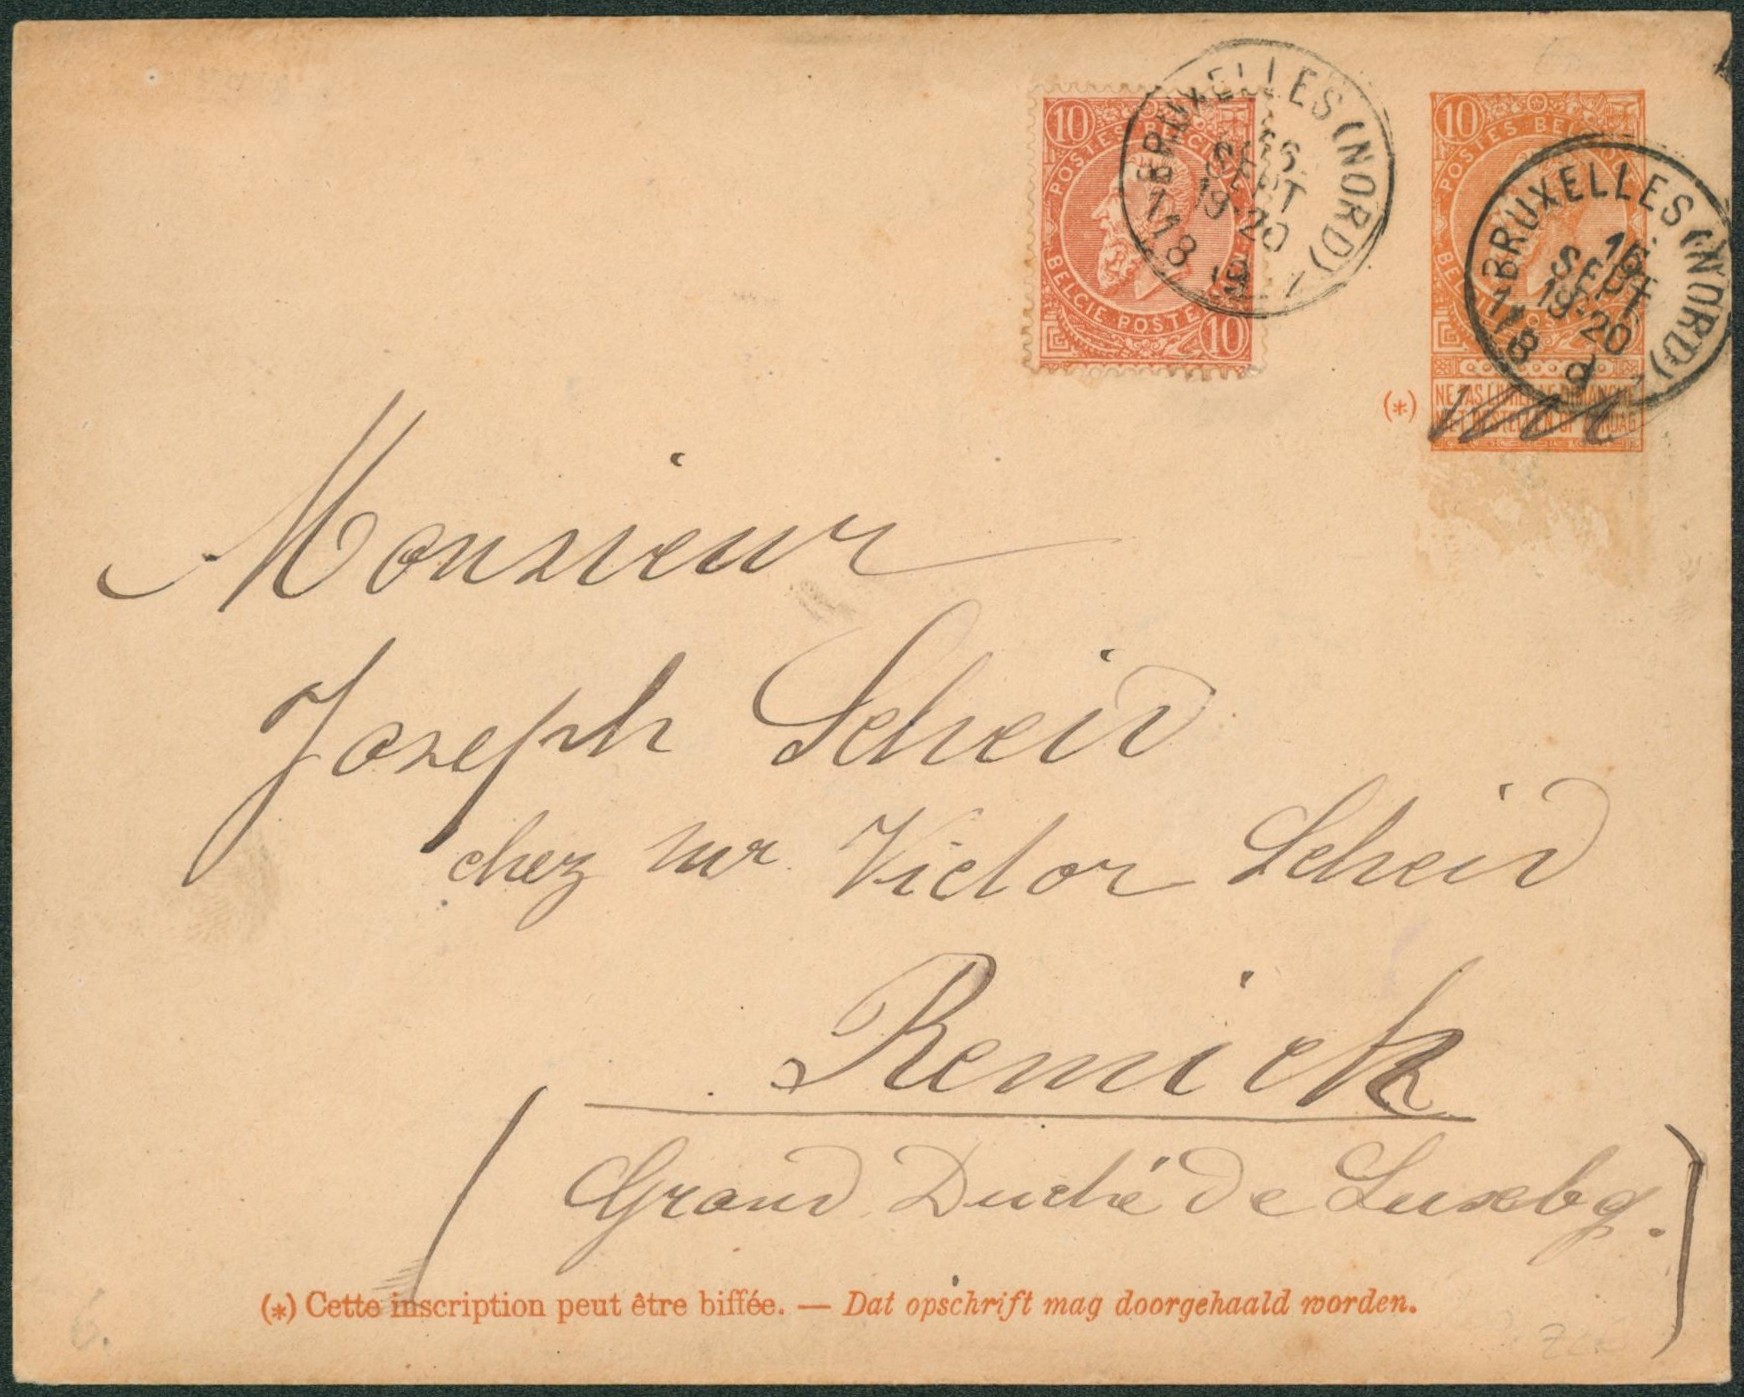 10
POSTES BELGIQUE
BELGIE POSTERIJEN
10
BRUXELLES (NORD)
16
SEPT
19-20
118
10
POSTES BELGIQUE
BRUXELLES (NORD)
16
SEPT
19-20
118
(*)
NE PAS LIVRER LE DIMANCHE
NIET BESTELLEN OP ZONDAG
Monsieur
Joseph Scheid
chez Mr Victor Scheid
Remich
(Grand Duché de Luxebg.)
(*) Cette inscription peut être biffée. — Dat opschrift mag doorgehaald worden.
6.